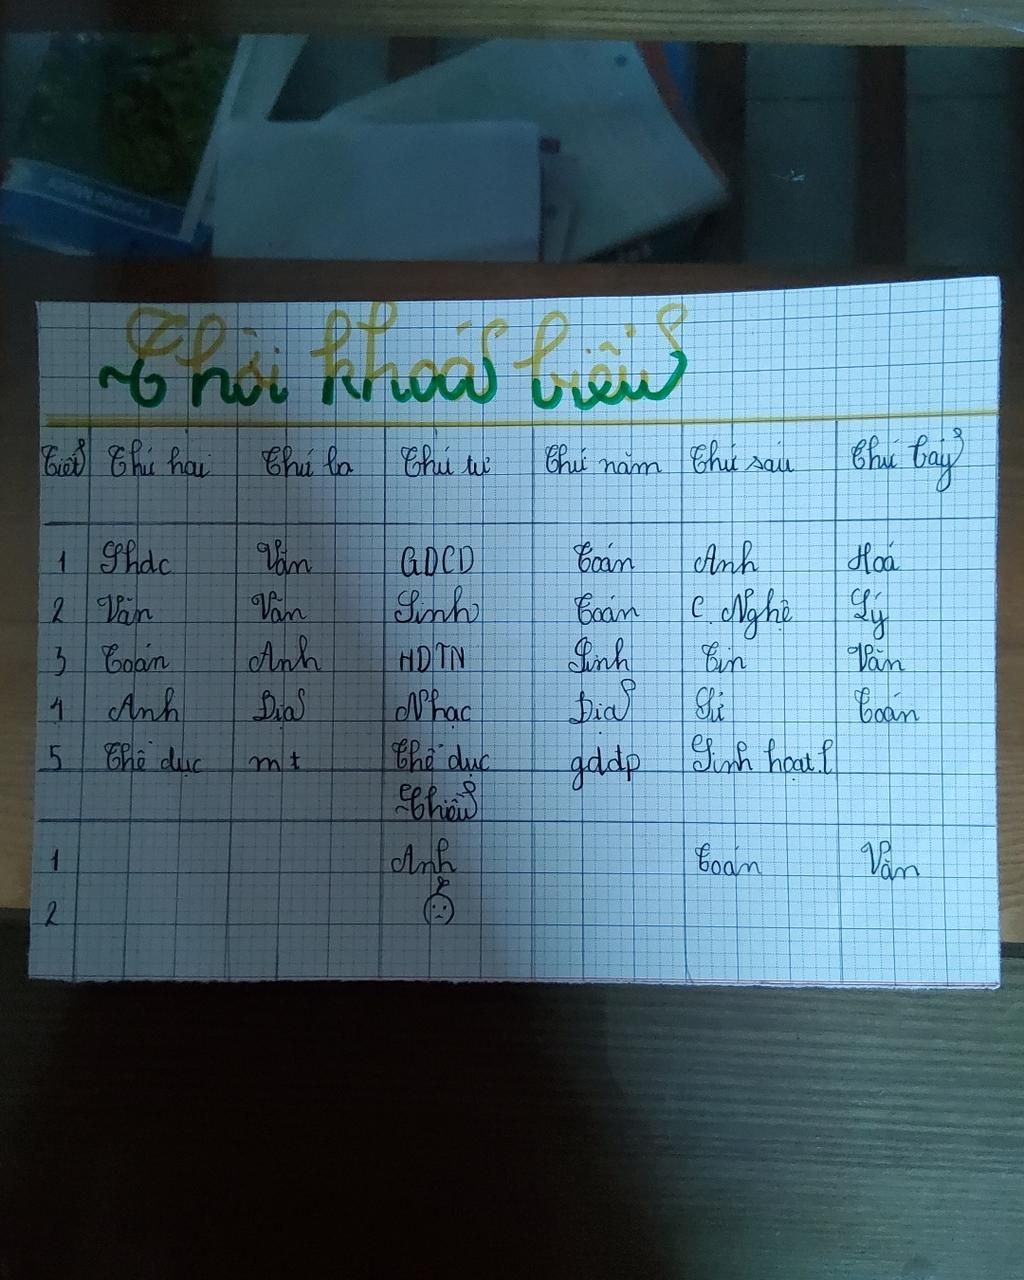 Thời khoá biểu
Tiết Thứ hai Thứ ba Thứ tư Thứ năm Thứ sáu Thứ bảy
1 Shdc Văn GDCD Toán Anh Hoá
2 Văn Văn Sinh Toán C. Nghệ Lý
3 Toán Anh HDTN Sinh Tin Văn
4 Anh Địa Nhạc Địa Sử Toán
5 Thể dục mt Thể dục gddp Sinh hoạt l
Chiều
1 Anh Toán Văn
2